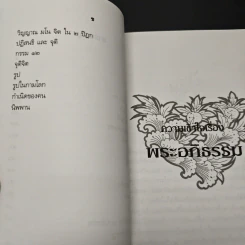 ๖
วิญญาณ มโน จิต ใน ๓ ปิฎก
ปฏิสนธิ และ จุติ
กรรม ๑๒
จุติจิต
รูป
รูปในกามโลก
กำเนิดของคน
นิพพาน
ความเข้าใจเรื่อง
พระอภิธรรม